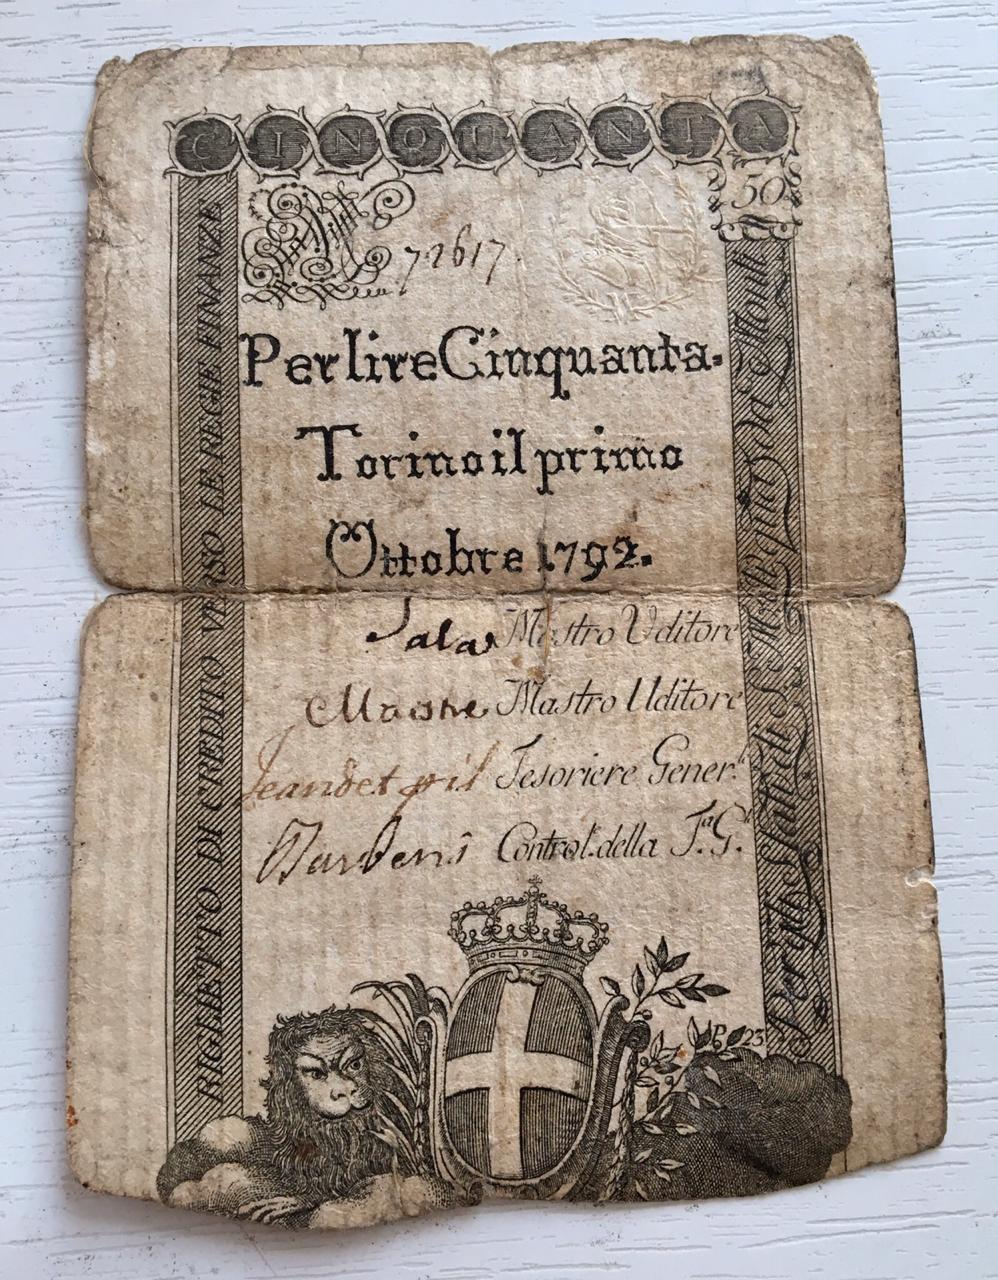 CINQUANTA
50
72617
Per lire Cinquanta.
Torino il primo
Ottobre 1792.
Sala Mastro Uditore
Mastro Uditore
Jeandet Tesoriere Gener.
Control. della T.a G.
RIGLIETTO DI CREDITO VERSO LE REGIE FINANZE
23